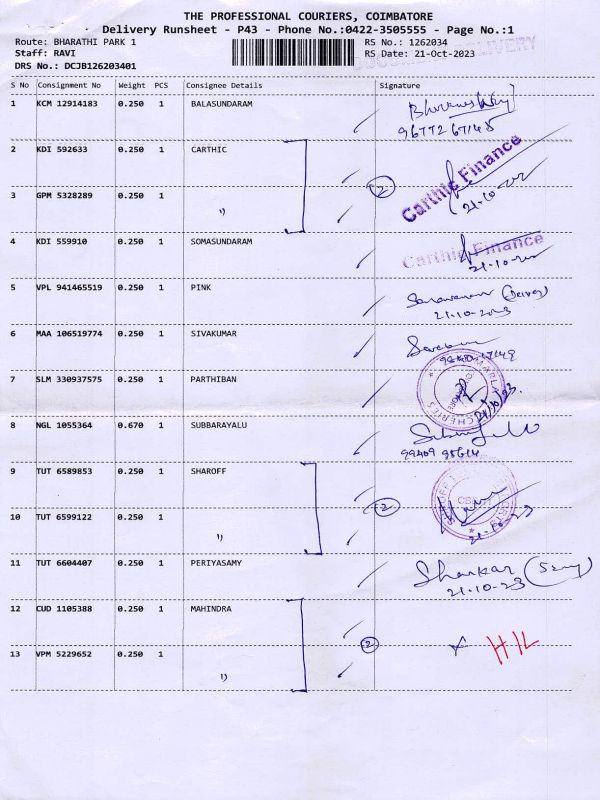 THE PROFESSIONAL COURIERS, COIMBATORE
Delivery Runsheet - P43 - Phone No.:0422-3505555 - Page No.:1
Route: BHARATHI PARK 1 RS No.: 1262034
Staff: RAVI RS Date: 21-Oct-2023
DELIVERY
DRS No.: DCJB126203401
S No Consignment No Weight PCS Consignee Details Signature
1 KCM 12914183 0.250 1 BALASUNDARAM
2 KDI 592633 0.250 1 CARTHIC
2 Carthic Finance
3 GPM 5328289 0.250 1 ")
4 KDI 559910 0.250 1 SOMASUNDARAM Carthic Finance
5 VPL 941465519 0.250 1 PINK
21-10-2023
6 MAA 106519774 0.250 1 SIVAKUMAR
7 SLM 330937575 0.250 1 PARTHIBAN
8 NGL 1055364 0.670 1 SUBBARAYALU
9 TUT 6589853 0.250 1 SHAROFF
2
10 TUT 6599122 0.250 1 ")
21-10-23
11 TUT 6604407 0.250 1 PERIYASAMY Shankar
21-10-23
12 CUD 1105388 0.250 1 MAHINDRA
2 x HIL
13 VPM 5229652 0.250 1 ")